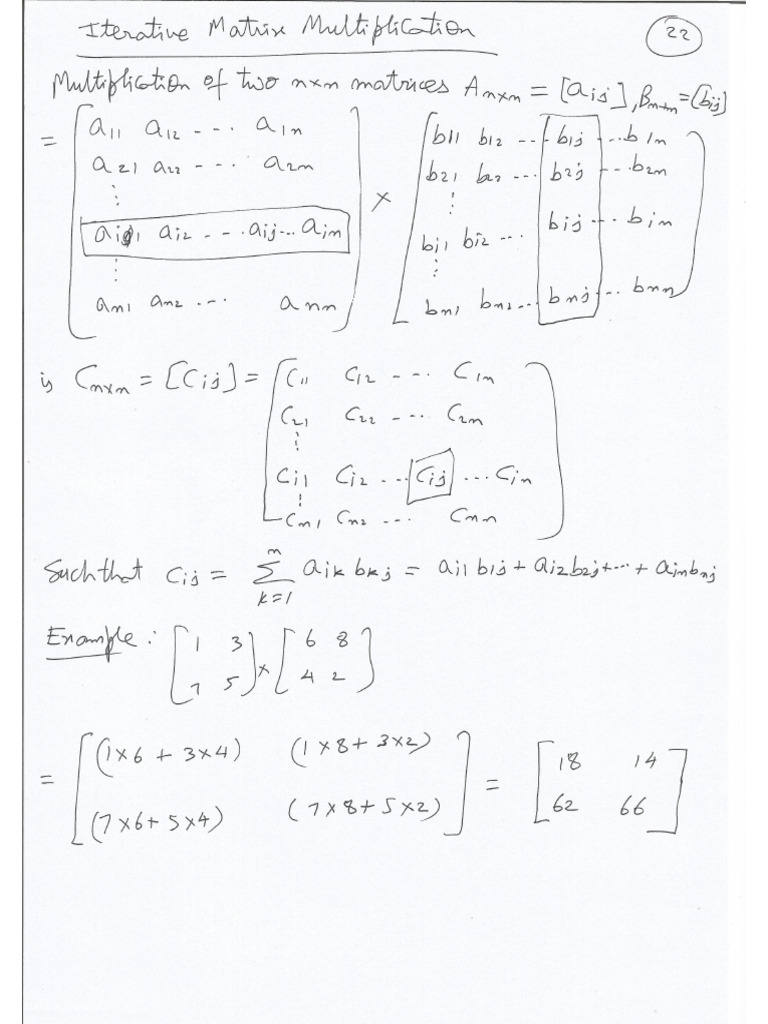 Iterative Matrix Multiplication
22
Multiplication of two n×n matrices A_{n×n} = [a_{ij}], B_{n×n} = [b_{ij}]
= [ a_{11} a_{12} --- a_{1n} ] × [ b_{11} b_{12} ... b_{1j} ... b_{1n} ]
a_{21} a_{22} --- a_{2n} b_{21} b_{22} ... b_{2j} ... b_{2n}
⋮ ⋮
a_{i1} a_{i2} --- a_{ij} ... a_{in} b_{i1} b_{i2} ... b_{ij} ... b_{in}
⋮ ⋮
a_{n1} a_{n2} --- a_{nn} b_{n1} b_{n2} ... b_{nj} ... b_{nn}
is C_{n×n} = [C_{ij}] = [ C_{11} C_{12} --- C_{1n} ]
C_{21} C_{22} --- C_{2n}
⋮
C_{i1} C_{i2} ... C_{ij} ... C_{in}
⋮
C_{n1} C_{n2} ... C_{nn}
Such that C_{ij} = Σ_{k=1}^{n} a_{ik} b_{kj} = a_{i1} b_{1j} + a_{i2} b_{2j} + ... + a_{in} b_{nj}
Example: [ 1 3 ] × [ 6 8 ]
7 5 4 2
= [ (1×6 + 3×4) (1×8 + 3×2) ] = [ 18 14 ]
(7×6 + 5×4) (7×8 + 5×2) 62 66